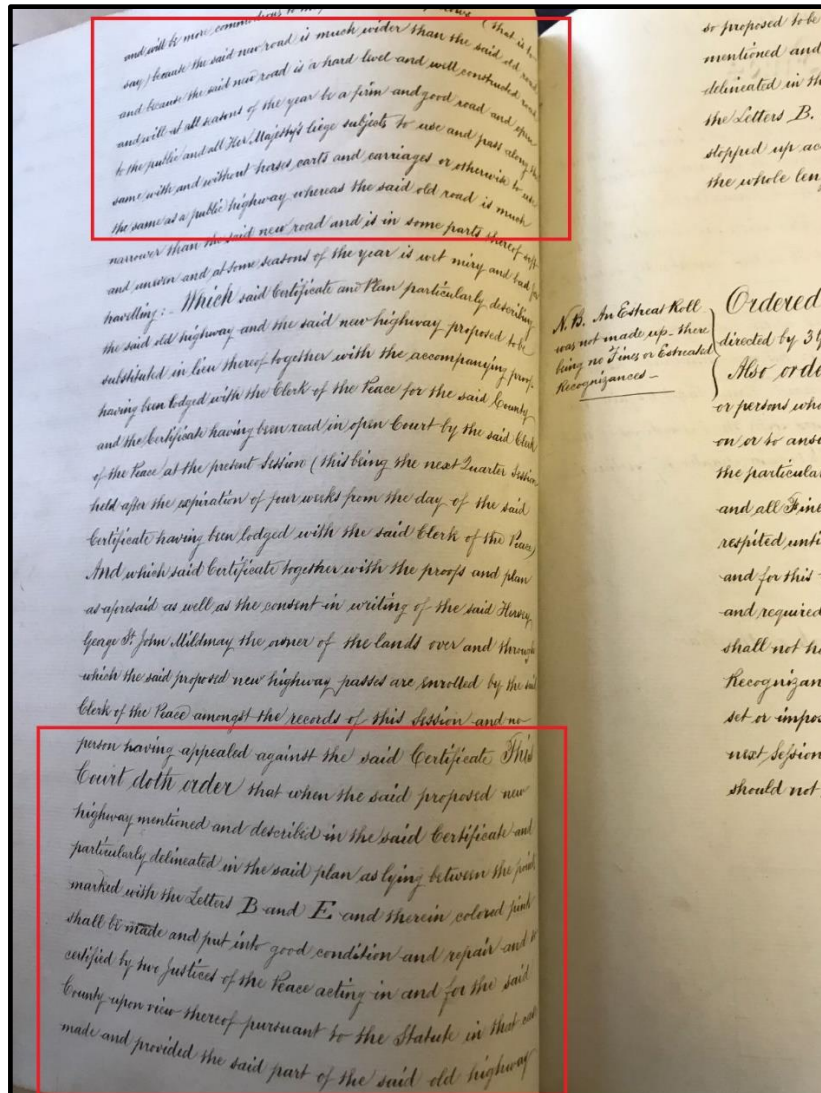 and will be more commodious to the
say) because the said new road is much wider than the said old road
and because the said new road is a hard level and well constructed road
and will at all seasons of the year be a firm and good road and open
to the public and all Her Majesty's liege subjects to use and pass along the
same with and without horses, carts and carriages or otherwise to use
the same as a public highway whereas the said old road is much
narrower than the said new road and is in some parts thereof soft
and uneven and at some seasons of the year is wet miry and bad for
travelling :- Which said Certificate and Plan particularly describing
the said old highway and the said new highway proposed to be
substituted in lieu thereof together with the accompanying proof
having been lodged with the Clerk of the Peace for the said County
and the Certificate having been read in open Court by the said Clerk
of the Peace at the present Session (this being the next Quarter Session
held after the expiration of four weeks from the day of the said
Certificate having been lodged with the said Clerk of the Peace)
And which said Certificate together with the proofs and plan
as aforesaid as well as the consent in writing of the said Hervey
George St. John Mildmay the owner of the lands over and through
which the said proposed new highway passes are enrolled by the said
Clerk of the Peace amongst the records of this Session and no
person having appealed against the said Certificate This
Court doth order that when the said proposed new
highway mentioned and described in the said Certificate and
particularly delineated in the said plan as lying between the point
marked with the Letters B and E and therein colored pink
shall be made and put into good condition and repair and so
certified by two Justices of the Peace acting in and for the said
County upon view thereof pursuant to the Statute in that case
made and provided the said part of the said old highway
so proposed to be
mentioned and
delineated in th
the Letters B.
stopped up ac
the whole len
N.B. An Estreat Roll
was not made up - there
being no Fines or Estreated
Recognizances -
Ordered
directed by 3 G
Also orde
or persons who
on or to ans
the particular
and all Fine
respited unti
and for this
and required
shall not ha
Recognizan
set or impos
next Session
should not